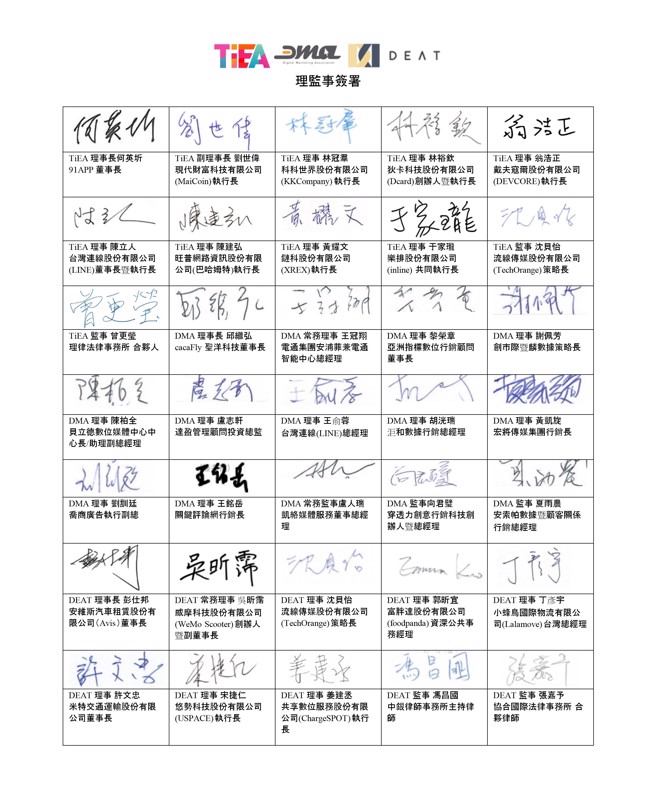 TiEA DMA Digital Marketing Association DEAT
理監事簽署
何英圻 劉世偉 林冠羣 林裕欽 翁浩正
TiEA 理事長何英圻
91APP 董事長
TiEA 副理事長 劉世偉
現代財富科技有限公司
(MaiCoin)執行長
TiEA 理事 林冠羣
科科世界股份有限公司
(KKCompany)執行長
TiEA 理事 林裕欽
狄卡科技股份有限公司
(Dcard)創辦人暨執行長
TiEA 理事 翁浩正
戴夫寇爾股份有限公司
(DEVCORE)執行長
陳建弘 黃耀文 于家瓏 沈貝怡
TiEA 理事 陳立人
台灣連線股份有限公司
(LINE)董事長暨執行長
TiEA 理事 陳建弘
旺普網路資訊股份有限
公司(巴哈姆特)執行長
TiEA 理事 黃耀文
鏈科股份有限公司
(XREX)執行長
TiEA 理事 于家瓏
樂排股份有限公司
(inline) 共同執行長
TiEA 監事 沈貝怡
流線傳媒股份有限公司
(TechOrange)策略長
曾更瑩 邱繼弘 謝佩芳
TiEA 監事 曾更瑩
理律法律事務所 合夥人
DMA 理事長 邱繼弘
cacaFly 聖洋科技董事長
DMA 常務理事 王冠翔
電通集團安浦菲兼電通
智能中心總經理
DMA 理事 黎榮章
亞洲指標數位行銷顧問
董事長
DMA 理事 謝佩芳
創市際暨麟數據策略長
陳柏全 盧志軒 王俞蓉
DMA 理事 陳柏全
員立德數位媒體中心中
心長/助理副總經理
DMA 理事 盧志軒
達盈管理顧問投資總監
DMA 理事 王俞蓉
台灣連線(LINE)總經理
DMA 理事 胡洸瑞
汩和數據行銷總經理
DMA 理事 黃凱旋
宏將傳媒集團行銷長
王銘岳 向君璧
DMA 理事 劉釧廷
喬商廣告執行副總
DMA 理事 王銘岳
關鍵評論網行銷長
DMA 常務監事盧人瑞
凱絡媒體服務董事總經
理
DMA 監事向君璧
穿透力創意行銷科技創
辦人暨總經理
DMA 監事 夏雨農
安索帕數據暨顧客關係
行銷總經理
彭仕邦 吳昕霈 沈貝怡 Emma Kuo 丁彥宇
DEAT 理事長 彭仕邦
安維斯汽車租賃股份有
限公司(Avis) 董事長
DEAT 常務理事 吳昕霈
威摩科技股份有限公司
(WeMo Scooter)創辦人
暨副董事長
DEAT 理事 沈貝怡
流線傳媒股份有限公司
(TechOrange)策略長
DEAT 理事 郭昕宜
富胖達股份有限公司
(foodpanda) 資深公共事
務經理
DEAT 理事 丁彥宇
小蜂鳥國際物流有限公
司(Lalamove)台灣總經理
許文忠 宋捷仁 姜建丞 馮昌國 張嘉予
DEAT 理事 許文忠
米特交通運輸股份有限
公司董事長
DEAT 理事 宋捷仁
悠勢科技股份有限公司
(USPACE) 執行長
DEAT 理事 姜建丞
共享數位服務股份有限
公司(ChargeSPOT) 執行
長
DEAT 監事 馮昌國
中銀律師事務所主持律
師
DEAT 監事 張嘉予
協合國際法律事務所 合
夥律師